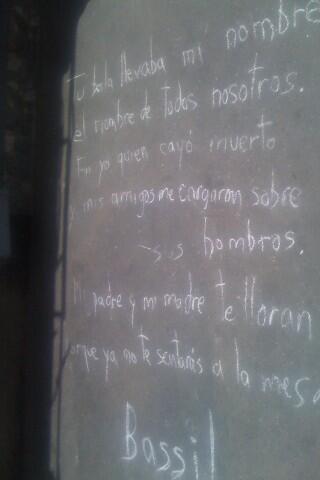 Tu bala llevaba mi nombre
el nombre de todos nosotros.
Fui yo quien cayó muerto
y mis amigos me cargaron sobre
sus hombros.
Mi padre y mi madre te lloran
porque ya no te sentarás a la mesa
Bassil